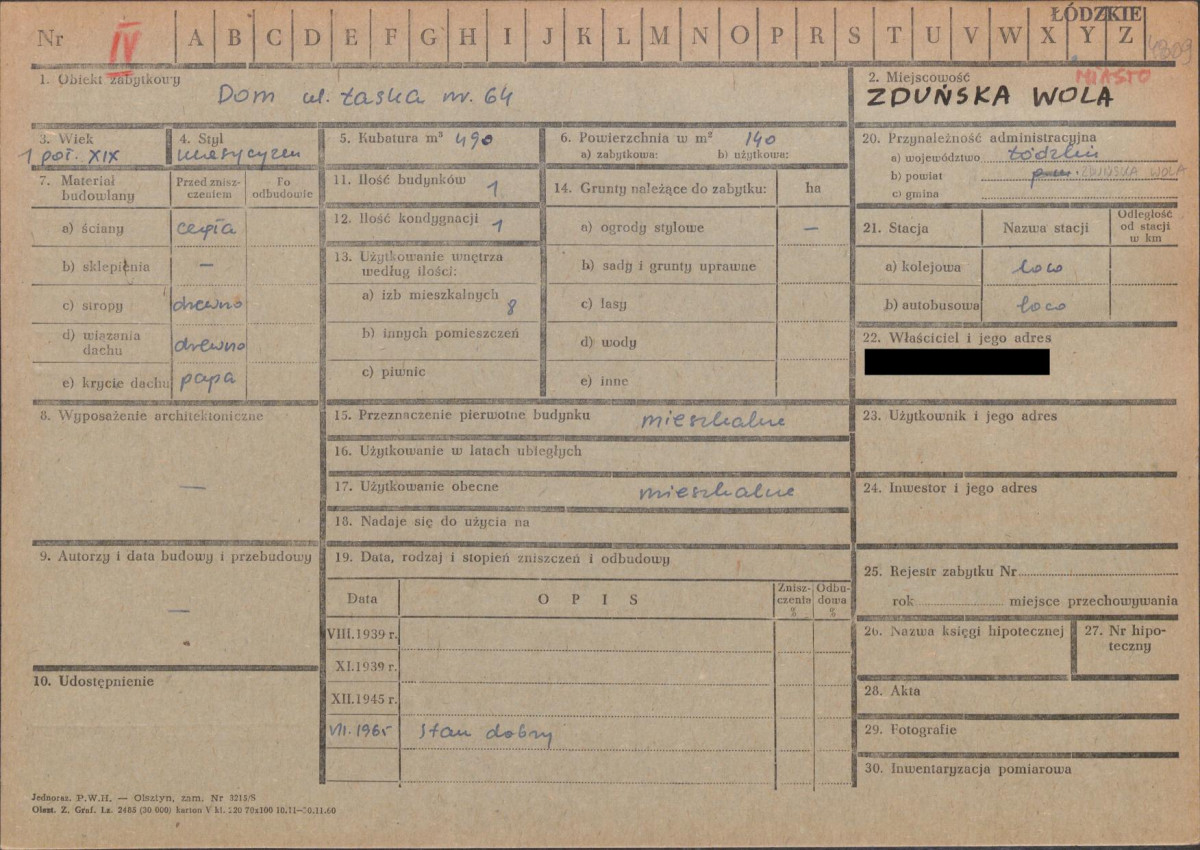 Nr IV A B C D E F G H I J K L M N O P R S T U V W X Y Z
ŁÓDZKIE
4309
1. Obiekt zabytkowy
Dom ul. Łaska nr. 64
2. Miejscowość
MIASTO
ZDUŃSKA WOLA
3. Wiek
1 poł. XIX
4. Styl
5. Kubatura m³ 490
6. Powierzchnia w m² 140
a) zabytkowa: b) użytkowa:
7. Materiał budowlany
Przed zniszczeniem
Po odbudowie
a) ściany cegła
b) sklepienia –
c) stropy drewno
d) wiązania dachu drewno
e) krycie dachu papa
8. Wyposażenie architektoniczne
—
9. Autorzy i data budowy i przebudowy
—
10. Udostępnienie
11. Ilość budynków 1
12. Ilość kondygnacji 1
13. Użytkowanie wnętrza
według ilości:
a) izb mieszkalnych 8
b) innych pomieszczeń
c) piwnic
14. Grunty należące do zabytku: ha
a) ogrody stylowe –
b) sady i grunty uprawne
c) lasy
d) wody
e) inne
15. Przeznaczenie pierwotne budynku mieszkalne
16. Użytkowanie w latach ubiegłych
17. Użytkowanie obecne mieszkalne
18. Nadaje się do użycia na
19. Data, rodzaj i stopień zniszczeń i odbudowy
Data OPIS Zniszczenia % Odbudowa %
VIII.1939 r.
XI.1939 r.
XII.1945 r.
VII. 1965 stan dobry
20. Przynależność administracyjna
a) województwo łódzkie
b) powiat ZDUŃSKA WOLA
c) gmina
21. Stacja Nazwa stacji Odległość od stacji w km
a) kolejowa loco
b) autobusowa loco
22. Właściciel i jego adres
23. Użytkownik i jego adres
24. Inwestor i jego adres
25. Rejestr zabytku Nr
rok miejsce przechowywania
26. Nazwa księgi hipotecznej
27. Nr hipoteczny
28. Akta
29. Fotografie
30. Inwentaryzacja pomiarowa
Jednoraz. P.W.H. — Olsztyn, zam. Nr 3215/S
Olszt. Z. Graf. Lz. 2485 (30 000) karton V kl. 220 70x100 10.11—30.11.60